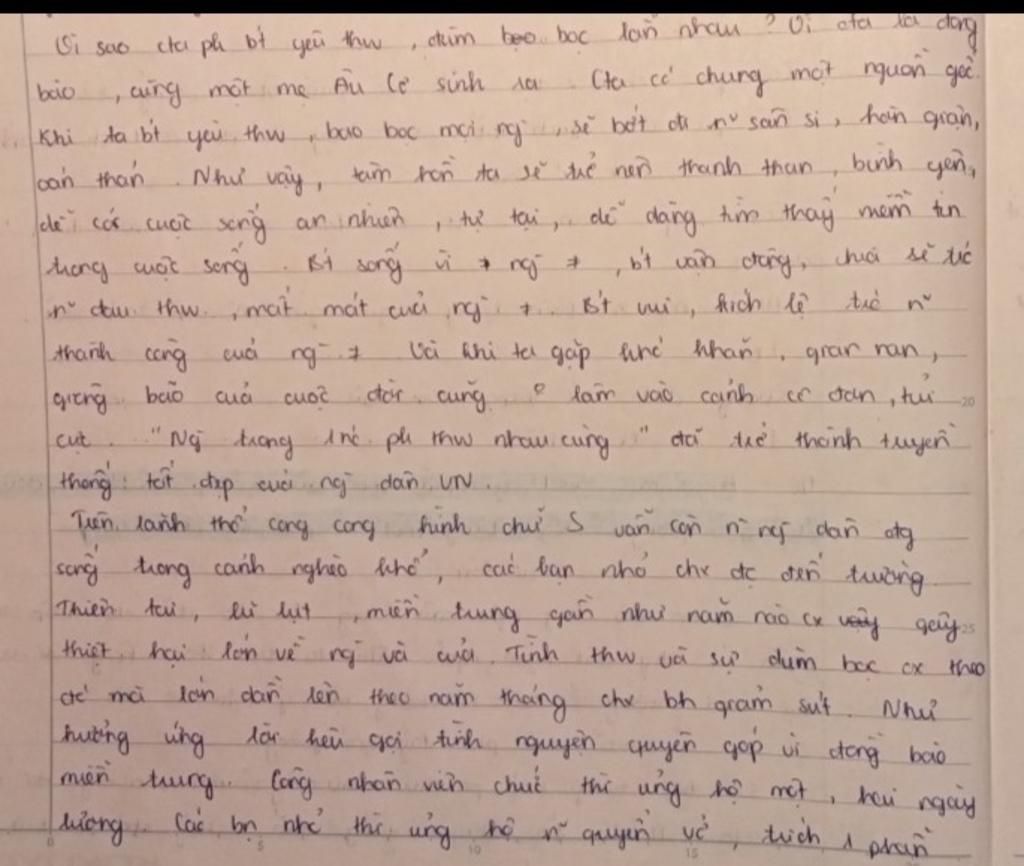 Vì sao cta ph bt yêu thw, đùm bọc lẫn nhau? Vì cta là đồng
bào, cùng một mẹ Âu Cơ sinh ra. Cta có chung một nguồn gốc.
Khi ta bt yêu thw, bao bọc mọi ng, sẽ bớt đi n~ sân si, hờn giận,
oán thán. Như vậy, tâm hồn ta sẽ trở nên thanh thản, bình yên,
để có cuộc sống an nhiên, tự tại, dễ dàng tìm thấy niềm tin
trong cuộc sống. Bt sống vì ≠ ng ≠, bt vận động, chia sẻ trc
n~ đau thw, mất mát của ng ≠. Bt vui, khích lệ trc n~
thành công của ng ≠. Và khi ta gặp khó khăn, gian nan,
giông bão của cuộc đời cũng o lâm vào cảnh cô đơn, tủi
cực. "Ng trong 1 nc ph thw nhau cùng" đã trở thành truyền
thống tốt đẹp của ng dân VN.
Trên lãnh thổ cong cong hình chữ S vẫn còn n~ ng dân đg
sống trong cảnh nghèo khổ, các bạn nhỏ chx đc đến trường.
Thiên tai, lũ lụt, miền trung gần như năm nào cx gây
thiệt hại lớn về ng và của. Tình thw và sự đùm bọc cx theo
đó mà lớn dần lên theo năm tháng chx bh giảm sút. Như
hưởng ứng lời kêu gọi tình nguyện quyên góp vì đồng bào
miền trung. Công nhân viên chức thì ủng hộ một, hai ngày
lương. Các bn nhỏ thì ủng hộ n~ quyển vở, trích 1 phần